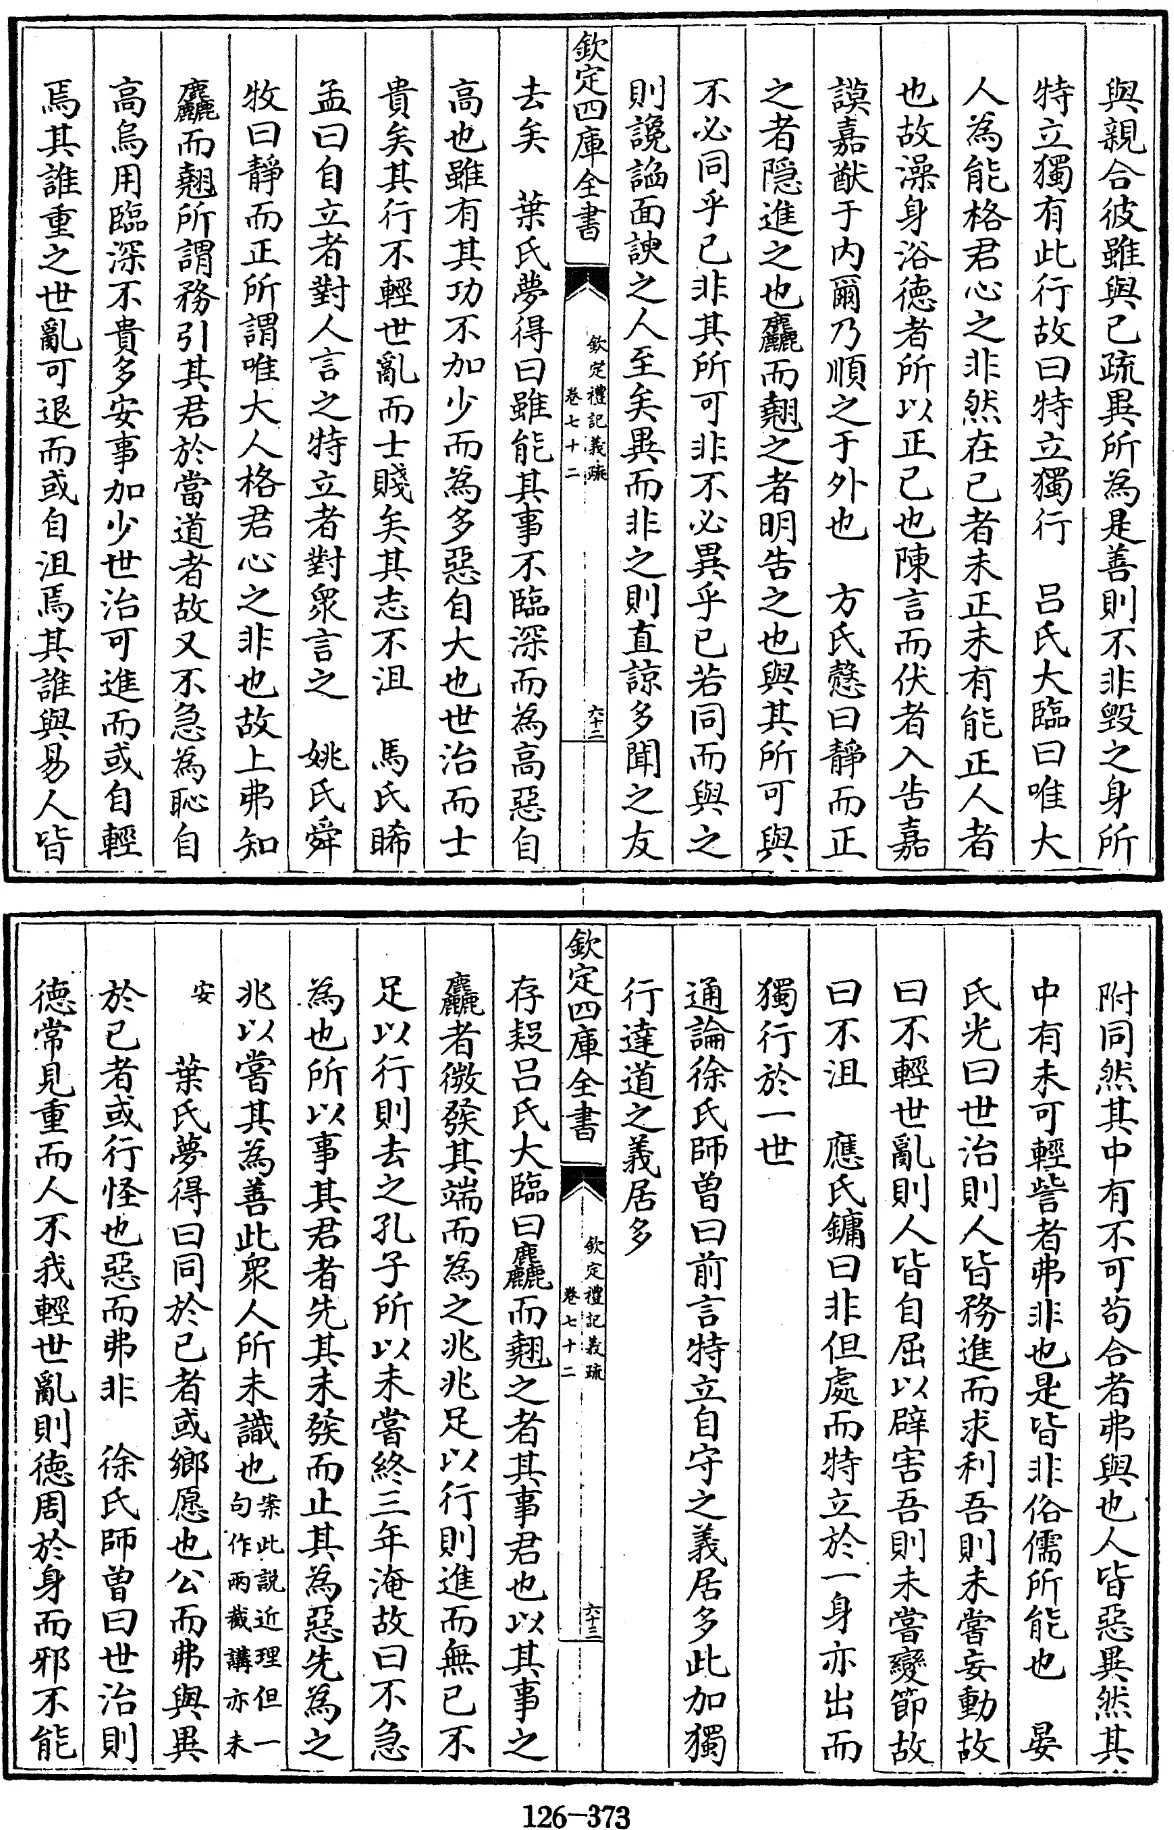 與親合彼雖與已疏異所為是善則不非毁之身所
特立獨有此行故曰特立獨行　吕氏大臨曰唯大
人為能格君心之非然在已者未正未有能正人者
也故澡身浴德者所以正已也陳言而伏者入告嘉
謨嘉猷于内爾乃順之于外也　方氏慤曰靜而正
之者隱進之也麤而翹之者明告之也與其所可與
不必同乎已非其所可非不必異乎已若同而與之
則讒諂面諛之人至矣異而非之則直諒多聞之友
欽定四庫全書
欽定禮記義疏
卷七十二
六十二
去矣　葉氏夢得曰雖能其事不臨深而為高惡自
高也雖有其功不加少而為多惡自大也世治而士
貴矣其行不輕世亂而士賤矣其志不沮　馬氏睎
孟曰自立者對人言之特立者對衆言之　姚氏舜
牧曰靜而正所謂唯大人格君心之非也故上弗知
麤而翹所謂務引其君於當道者故又不急為恥自
高烏用臨深不貴多安事加少世治可進而或自輕
焉其誰重之世亂可退而或自沮焉其誰與易人皆
附同然其中有不可茍合者弗與也人皆惡異然其
中有未可輕訾者弗非也是皆非俗儒所能也　晏
氏光曰世治則人皆務進而求利吾則未嘗妄動故
曰不輕世亂則人皆自屈以辟害吾則未嘗變節故
曰不沮　應氏鏞曰非但處而特立於一身亦出而
獨行於一世
通論徐氏師曾曰前言特立自守之義居多此加獨
行達道之義居多
欽定四庫全書
欽定禮記義疏
卷七十二
六十三
存疑吕氏大臨曰麤而翹之者其事君也以其事之
麤者微發其端而為之兆兆足以行則進而無已不
足以行則去之孔子所以未嘗終三年淹故曰不急
為也所以事其君者先其未發而止其為惡先為之
兆以當其為善此衆人所未識也案此説近理但一
句作兩截講亦未
安　葉氏夢得曰同於已者或鄉愿也公而弗與異
於已者或行怪也惡而弗非　徐氏師曾曰世治則
德常見重而人不我輕世亂則德周於身而邪不能
126-373